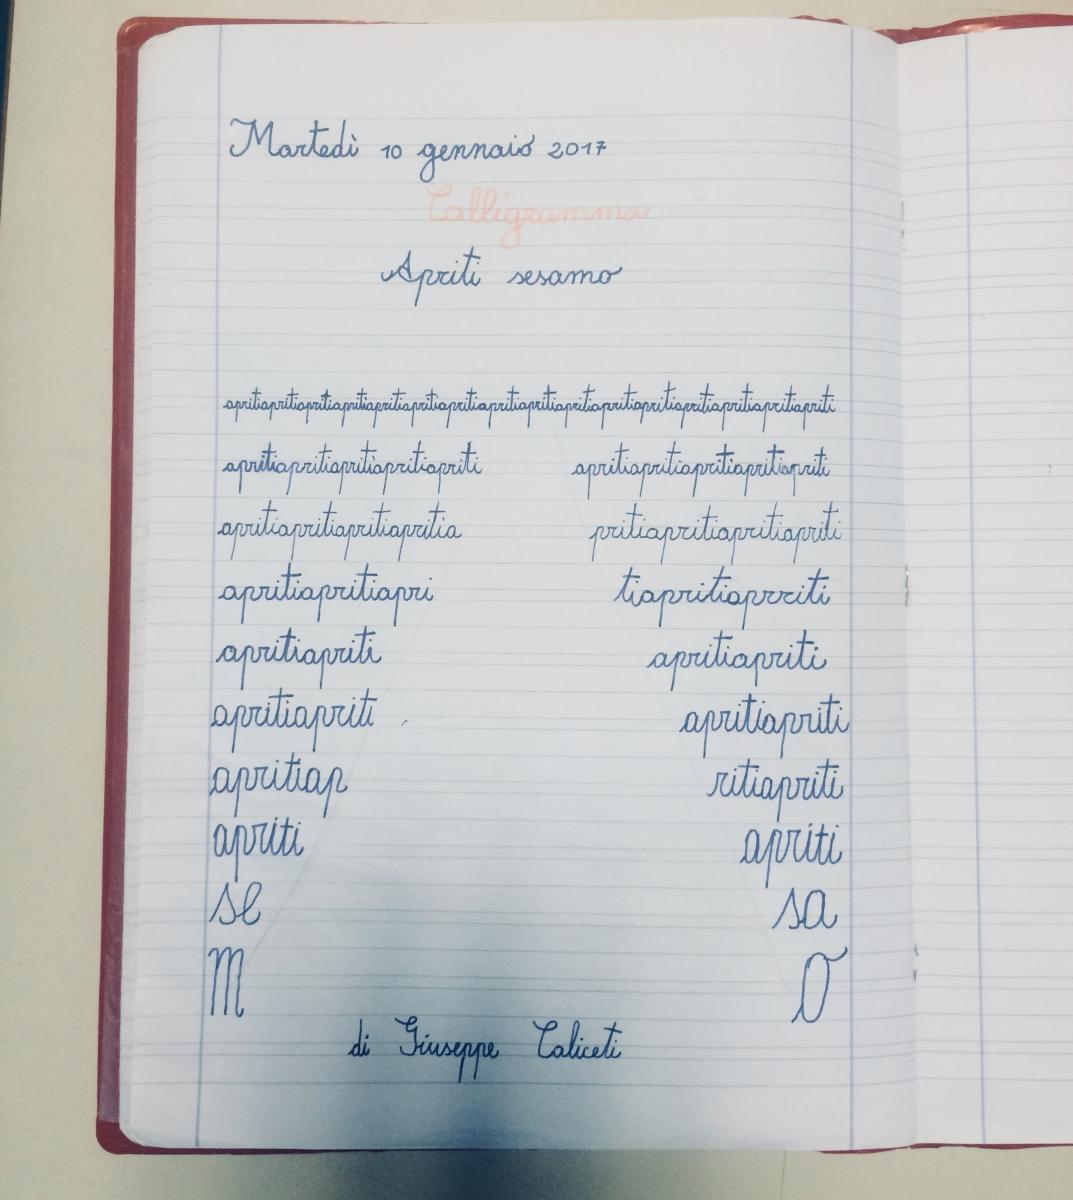 Martedì 10 gennaio 2017
Calligramma
Apriti sesamo
apritiapritiapritiapritiapritiapritiapritiapritiapritiapritiapritiapritiapritiapritiapritiapriti
apritiapritiapritiapritiapriti apritiapritiapritiapritiapriti
apritiapritiapritiapritia pritiapritiapritiapriti
apritiapritiapri tiapritiaprriti
apritiapriti apritiapriti
apritiapriti apritiapriti
apritiap ritiapriti
apriti apriti
se sa
m o
di Giuseppe Caliceti